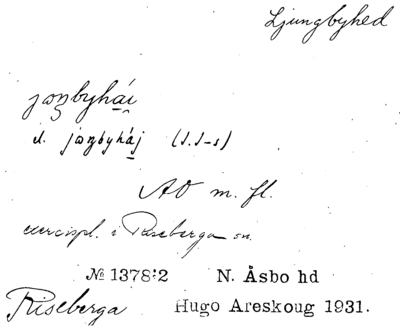 Ljungbyhed
jɷŋbyhái
el. jɷŋbyháj (S.S-s)
AO m. fl.
exercispl. i Riseberga sn.
№ 1378:2 N. Åsbo hd
Riseberga Hugo Areskoug 1931.